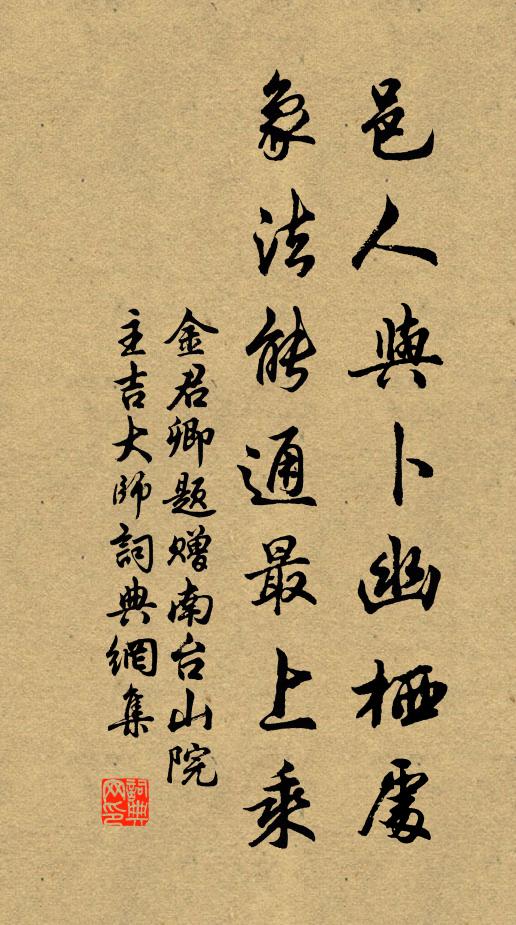 邑人與卜幽栖處
象法能通最上乘
金君卿題贈南台山院
主吉大師詞典網集
詞典网印